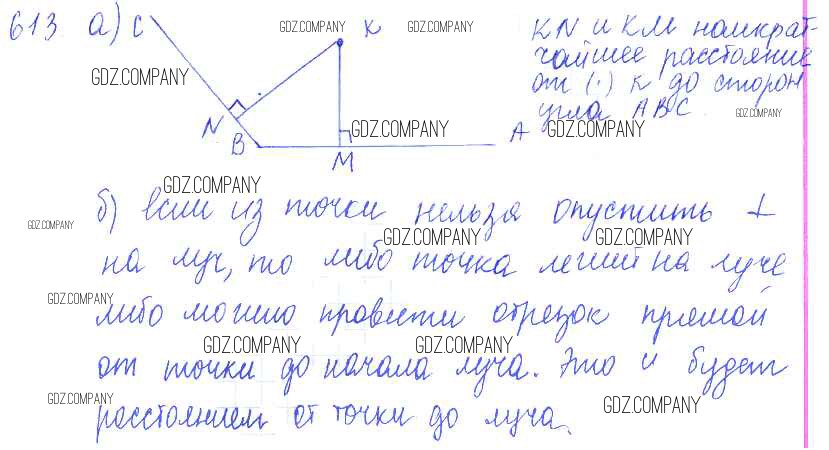 613 а) С GDZ.COMPANY К GDZ.COMPANY KN и KM наикрат-
чайшее расстояние
GDZ.COMPANY от (·) К до сторон
угла ABC GDZ.COMPANY
N B GDZ.COMPANY A GDZ.COMPANY
M
GDZ.COMPANY
б) если из точки нельзя опустить ⊥
GDZ.COMPANY GDZ.COMPANY GDZ.COMPANY
на луч, то либо точка лежит на луче
GDZ.COMPANY
либо можно провести отрезок прямой
GDZ.COMPANY GDZ.COMPANY
от точки до начала луча. Это и будет
GDZ.COMPANY GDZ.COMPANY
расстоянием от точки до луча.